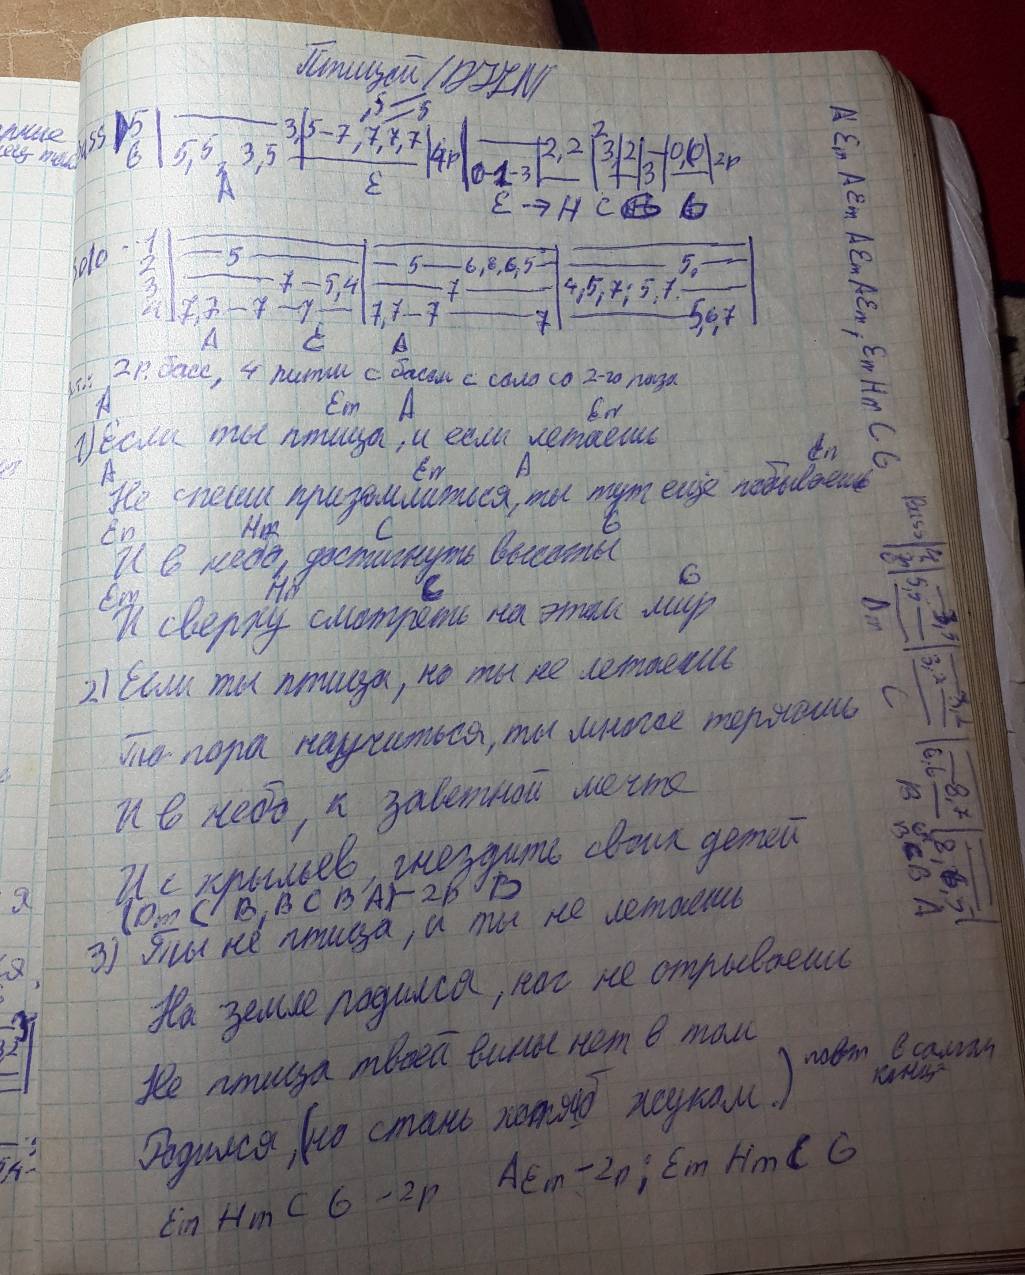 Птицей /
Bass 5 3, 5-7, 7, 7, 7 4р 2, 2 3 2 0, 0 2р
6 5, 5 3, 5 0-1-3 3
A E E → H C G
solo - 1
2 5 5 6, 6, 6, 5 5,
3 7 - 5, 4 7 4, 5, 7; 5, 7
4 7, 7 - 7 7, 7 - 7 7 5, 6, 7
A E A
2р. басс, 4 ритм с басом с соло со 2-го раза
A Em A Em
1) Если ты птица, и если летаешь
A Em A Em
Не спеши приземлиться, ты тут ещё побываешь
Em Hm C G
И в небо, достигнуть высоты
Em Hm C G
И сверху смотреть на этом мир
2) Если ты птица, но ты не летаешь
То пора научиться, ты многое теряешь
И в небо, к заветной мечте
И с крыльев, гнездить своих детей
(Dm C B, B C B A) - 2р B
3) Ты не птица, и ты не летаешь
На земле родился, ног не отрываешь
Не птица твоей вины нет в том
Родился, (но стань хотяб жуком.) повт в самом конце
Em Hm C G - 2р A Em - 2р; Em Hm C G
A Em A Em A Em A Em, Em Hm C G
Bass
Dm C B B C B A